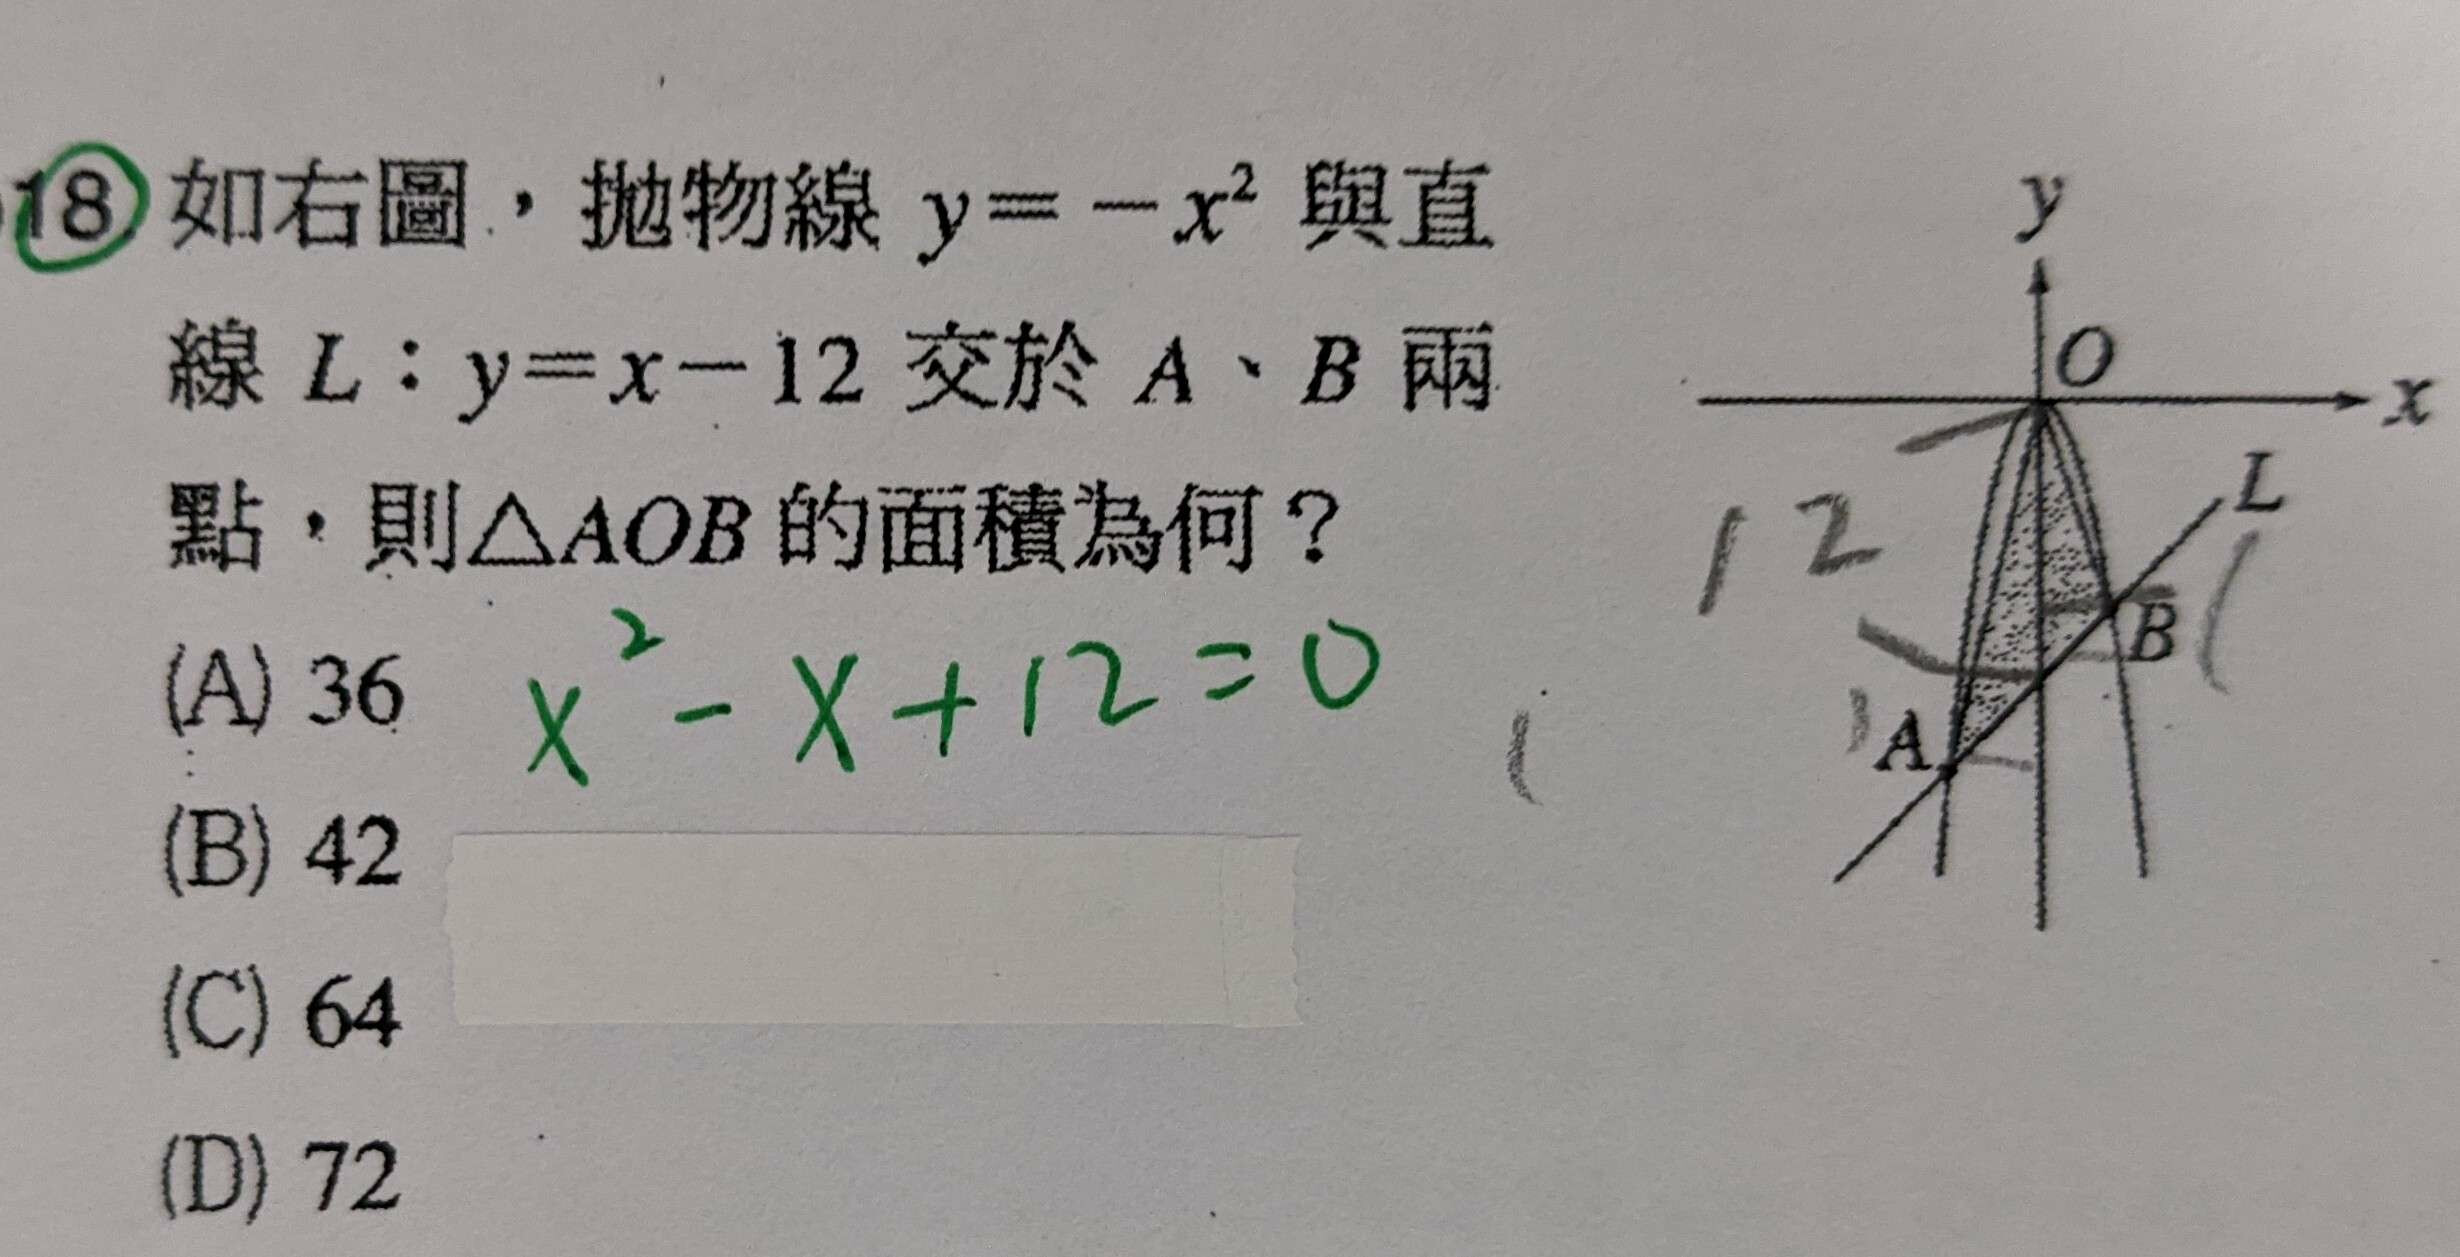 18. 如右圖，拋物線 y＝－x² 與直
線 L：y＝x－12 交於 A、B 兩
點，則△AOB 的面積為何？
(A) 36
x² - x + 12 = 0
(B) 42
(C) 64
(D) 72
y
O
x
L
12
B
A